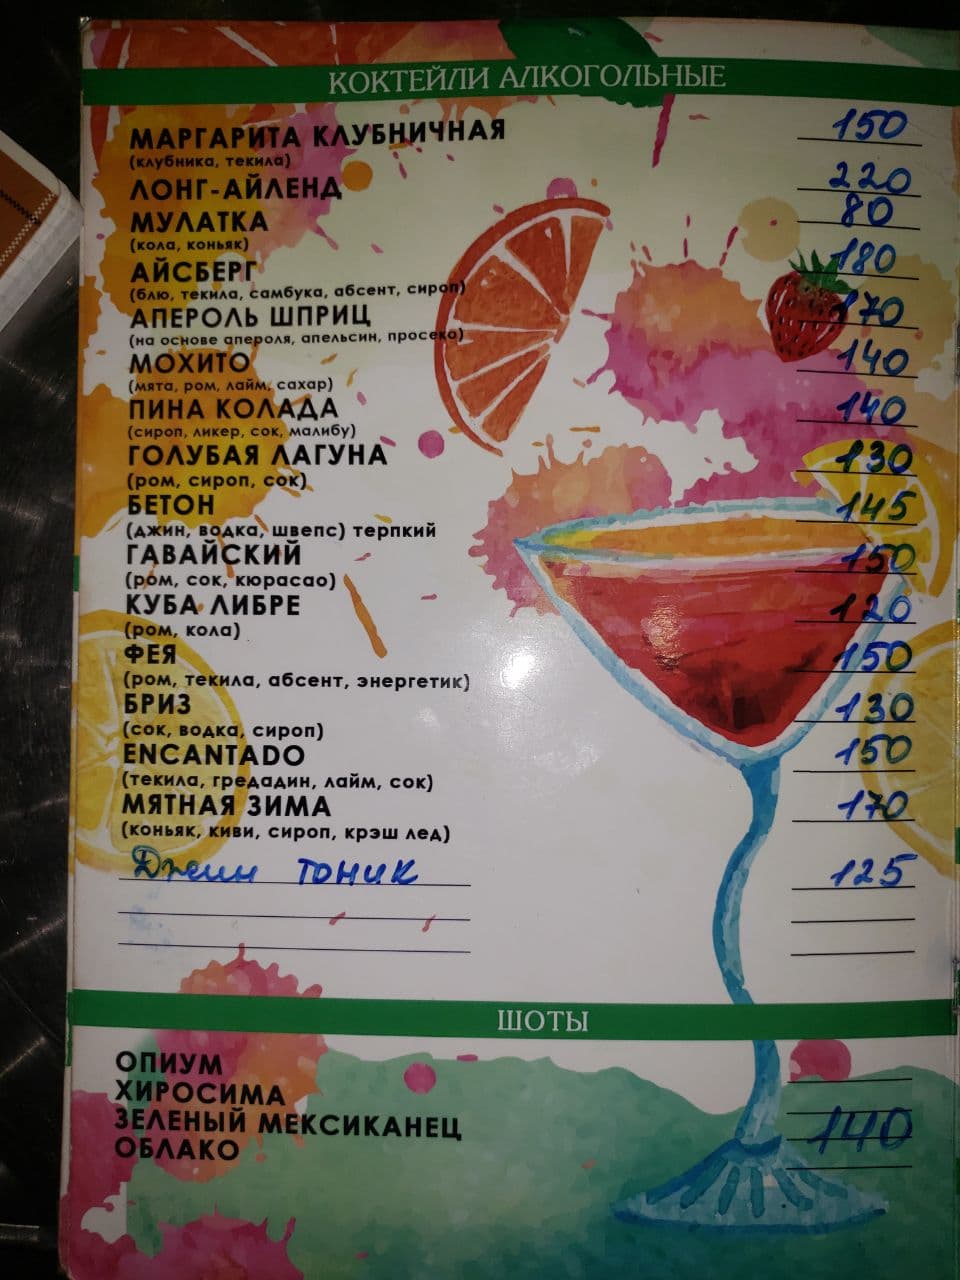 КОКТЕЙЛИ АЛКОГОЛЬНЫЕ
МАРГАРИТА КЛУБНИЧНАЯ 150
(клубника, текила)
ЛОНГ-АЙЛЕНД 220
МУЛАТКА 80
(кола, коньяк)
АЙСБЕРГ 180
(блю, текила, самбука, абсент, сироп)
АПЕРОЛЬ ШПРИЦ 170
(на основе апероля, апельсин, просеко)
МОХИТО 140
(мята, ром, лайм, сахар)
ПИНА КОЛАДА 140
(сироп, ликер, сок, малибу)
ГОЛУБАЯ ЛАГУНА 130
(ром, сироп, сок)
БЕТОН 145
(джин, водка, швепс) терпкий
ГАВАЙСКИЙ 150
(ром, сок, кюрасао)
КУБА ЛИБРЕ 120
(ром, кола)
ФЕЯ 150
(ром, текила, абсент, энергетик)
БРИЗ 130
(сок, водка, сироп)
ENCANTADO 150
(текила, гредадин, лайм, сок)
МЯТНАЯ ЗИМА 170
(коньяк, киви, сироп, крэш лед)
Джин тоник 125
ШОТЫ
ОПИУМ
ХИРОСИМА
ЗЕЛЕНЫЙ МЕКСИКАНЕЦ 140
ОБЛАКО